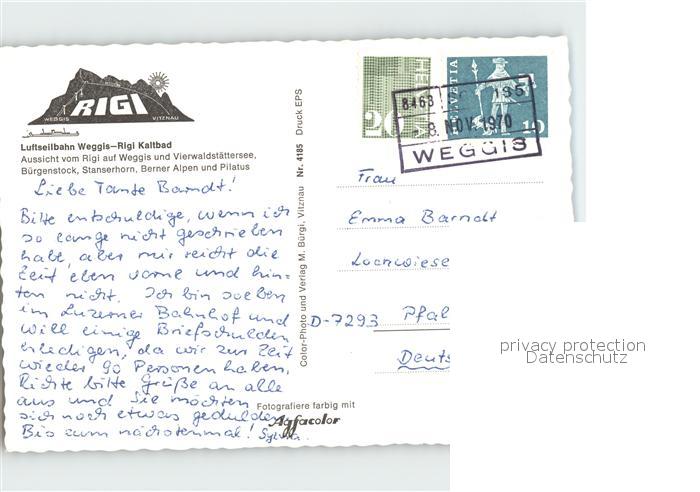 WEGGIS RIGI VITZNAU
Luftseilbahn Weggis–Rigi Kaltbad
Aussicht vom Rigi auf Weggis und Vierwaldstättersee,
Bürgenstock, Stanserhorn, Berner Alpen und Pilatus
Liebe Tante Barndt!
Bitte entschuldige, wenn ich
so lange nicht geschrieben
habe, aber mir reicht die
Zeit eben vorne und hin-
ten nicht. Ich bin soeben
im Luzerner Bahnhof und
will einige Briefschulden
erledigen, da wir zur Zeit
wieder 90 Personen haben.
Richte bitte Grüße an alle
aus und Sie möchten
sich noch etwas gedulden.
Bis zum nächstenmal! Sylvia.
Color-Photo und Verlag M. Bürgi, Vitznau Nr. 4185 Druck EPS
Fotografiere farbig mit
Agfacolor
HELVETIA
20
HELVETIA
10
8463
9. NOV. 1970
WEGGIS
Frau
Emma Barndt
D-7293 Pfal
Deuts
privacy protection
Datenschutz